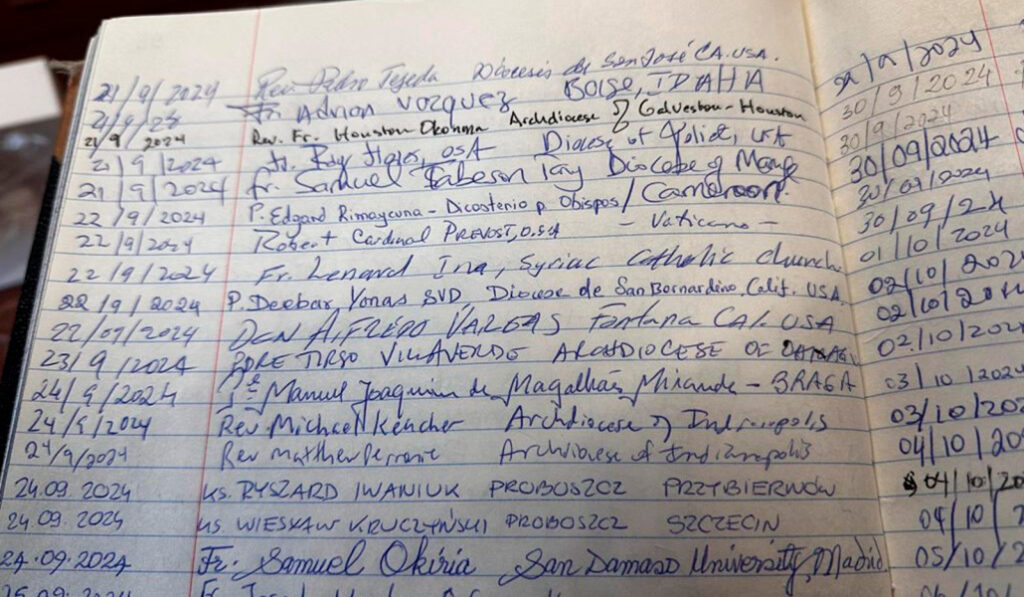 21/9/2024 Rev. Pedro Tejeda Diócesis de San José CA. USA.
Fr. Adrian Vazquez BOISE, IDAHA
21/9 2024 Rev. Fr. Houston Okonma Archdiocese of Galveston-Houston
21/9/2024 Fr. Ray Flores, OSA Diocese of Joliet, USA
21/9/2024 Fr. Samuel Tabeson Diocese of
22/9/2024 P. Edgard Rimaycuna - Dicasterio p. Obispos / Cameroon.
22/9/2024 Robert Cardinal PREVOST, O.S.A - Vaticano -
22/9/2024 Fr. Lenard Ina, Syriac Catholic church
22/9/2024 P. Deebar Yonas SVD, Diocese de San Bernardino, Calif. USA.
22/09/2024 DCN ALFREDO VARGAS Fontana CA. USA
23/9/2024 PDRE TIRSO VILLAVERDE ARCHDIOCESE OF
24/9/2024 Manuel Joaquim de Magalhães Miranda - BRAGA
24/9/2024 Rev. Michael Keucher Archdiocese of Indianapolis
24/9/2024 Rev Matthew Perronie Archdiocese of Indianapolis
24.09.2024 KS. RYSZARD IWANIUK PROBOSZCZ PRZYBIERNÓW
24.09.2024 KS. WIESŁAW KRUCZYŃSKI PROBOSZCZ SZCZECIN
24.09.2024 Fr. Samuel Okiria San Damaso University, Madrid.
25.09.2024 Fr.
30/9/2024
30/9/2024
30/09/2024
30/09/2024
30/09/24
01/10/2024
02/10/202
02/10/20
02/10/202
03/10/2024
03/10/202
04/10/20
04/10/20
04/10/
05/10/2